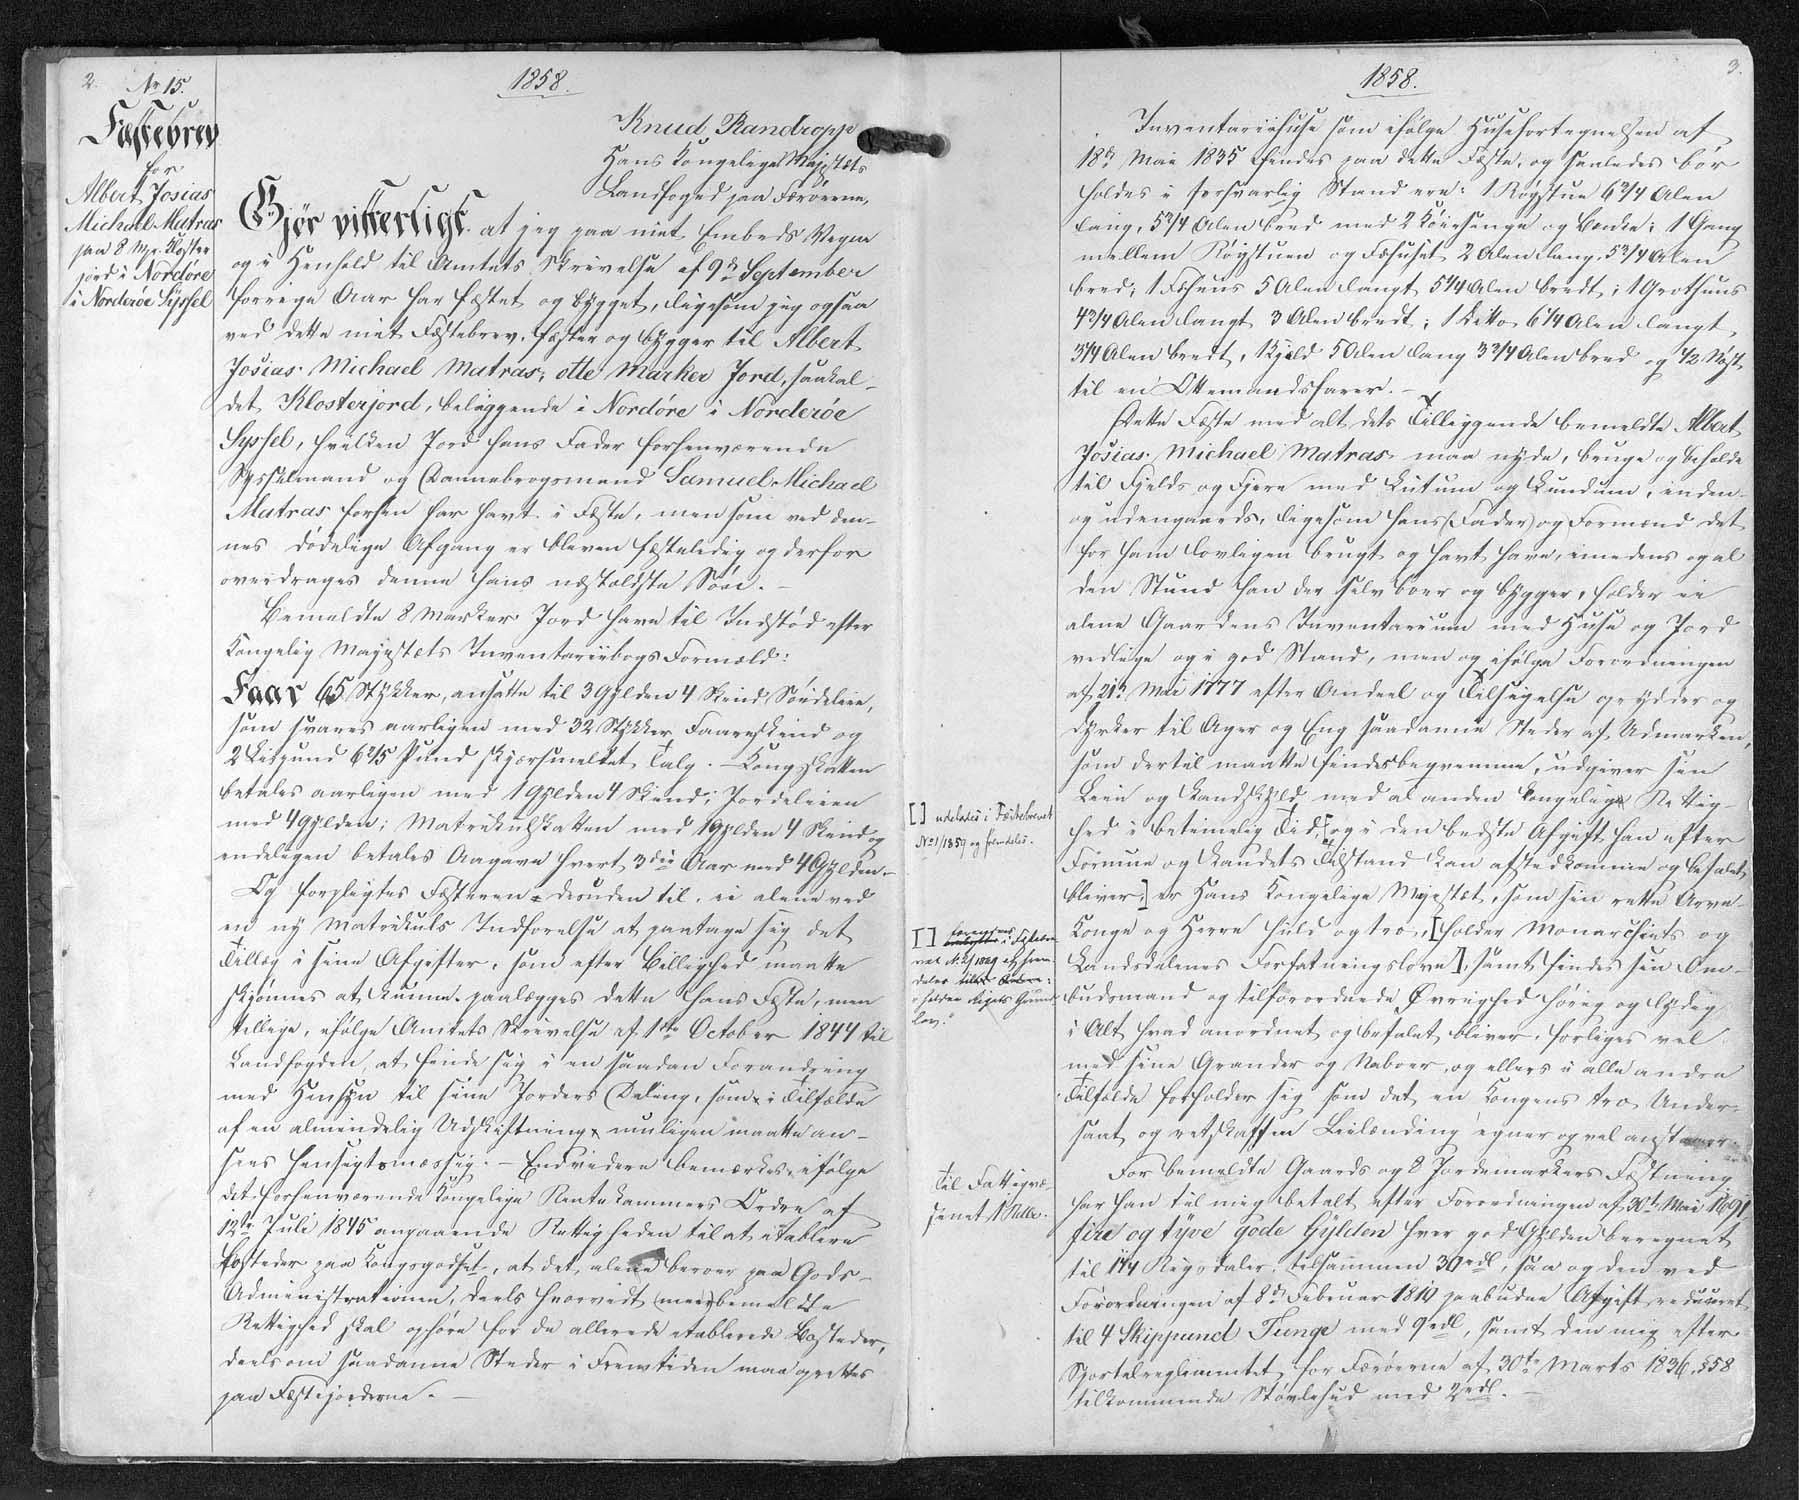 2.
No 15.
Fæstebrev
for
Albert Josias
Michael Matras
paa 8 Mrk. Kloster
jord i Nordöre
i Norderöe Syssel
1858.
Knud Randropp
Hans Kongelige Majestæts
Landfoged paa Færöerne,
Gjör vitterligt at jeg paa mit Embeds Vegne
og i Henhold til Amtets Skrivelse af 9de September
forrige Aar har fæstet og bygget, ligesom jeg ogsaa
ved dette mit Fæstebrev, fæster og bygger til Albert
Josias Michael Matras, otte Marker Jord, saakal-
det Klosterjord, beliggende i Nordöre i Norderöe
Syssel, hvilken Jord hans Fader forhenværende
Sysselmand og Dannebrogsmand Samuel Michael
Matras forhen har havt i Fæste, men som ved den-
nes dödelige Afgang er bleven fæsteledig og derfor
overdrages denne hans næstældste Sön. –
Bemeldte 8 Marker Jord have til Indstöd efter
Kongelig Majestæts Inventariibogs Formeld:
Faar 65 Stykker, ansatte til 3 Gylden 4 Skind Söudeleie,
som svares aarligen med 32 Stykker Faareskind og
2 Lispund 6 2/5 Pund skjærsmeltet Talg. – Kongsskatten
betales aarligen med 1 Gylden 4 Skind; Jordeleien
med 4 Gylden; Matrikulskatten med 1 Gylden 4 Skind og
endeligen betales Aagave hvert 3die Aar med 4 Gylden. –
Og forpligtes Fæsteren desuden til, ei alene ved
en ny Matrikuls Indförelse at paatage sig det
Tillæg i sine Afgifter, som efter Billighed maatte
skjönnes at kunne paalægges dette hans Fæste, men
tillige, ifölge Amtets Skrivelse af 1ste October 1844 til
Landfogden, at finde sig i en saadan Forandring
med Hensyn til sine Jorders Deling, som i Tilfælde
af en almindelig Udskiftning muligen maatte an-
sees hensigtsmæssig. – Endvidere bemærkes ifölge
det forhenværende Kongelige Rentekammers Ordre af
12te Juli 1845 angaaende Rettigheden til at etablere
Bosteder paa Kongsgodset, at det alene beroer paa Gods-
Administrationen, deels hvorvidt (meer)bemeldte
Rettighed skal ophöre for de allerede etablerede Bosteder,
deels om saadanne Steder i Fremtiden maa oprettes
paa Fæstejorderne. –
[ ] udelades i Fæstebrevet
No 1/1859 og fremdeles.
i Fæstebre
vet No 2/1859 og frem-
deles
"holder Rigets Grund
lov."
Til Fattigvæ-
senet
3.
1858.
Inventariihuse som ifölge Husefortegnelsen af
18de Mai 1835 findes paa dette Fæste, og saaledes bör
holdes i forsvarlig Stand ere: 1 Rögstue 6 3/4 Alen
lang, 5 3/4 Alen bred med 2 Köiesenge og Bænke; 1 Gang
mellem Rögstuen og Fæhuset 2 Alen lang, 5 3/4 Alen
bred; 1 Fæhuus 5 Alen langt 5 1/4 Alen bredt; 1 Grothuus
4 3/4 Alen langt 3 Alen bredt; 1 Ditto 6 1/4 Alen langt,
3 1/4 Alen bredt, 1 Hjeld 5 Alen lang 3 3/4 Alen bred og 1/2 Nöst
til en Ottemandsfarer. –
Dette Fæste med alt dets Tilliggende bemeldte Albert
Josias Michael Matras maa nyde, bruge og beholde
til Fjelds og Fjære med Lutum og Lundum, inden-
og udengaards, ligesom hans (Fader) og Formænd det
for ham lovligen brugt og havt have, imedens og al
den Stund han der selv boer og bygger, holder ei
alene Gaardens Inventarium med Huse og Jord
vedlige og i god Stand, men og ifölge Forordningen
af 21de Mai 1777 efter Andeel og Tilsigelse oprydder og
dyrker til Ager og Eng saadanne Steder af Udmarken,
som dertil maatte findes beqvemme, udgiver sin
Leie og Landskyld med al anden Kongelige Rettig-
hed i betimelig Tid, [og i den bedste Afgift han efter
Formue og Landets Tilstand kan afstedkomme og befalet
bliver,] er Hans Kongelige Majestæt, som sin rette Arve-
Konge og Herre huld og tro, [holder Monarchiets og
Landsdelenes Forfatningslove], samt findes sin Om-
budsmand og tilforordnede Øvrighed hörig og lydig
i Alt hvad anordnet og befalet bliver, forliges vel
med sine Grander og Naboer, og ellers i alle andre
Tilfælde forholder sig som det en Kongens tro Under-
saat og retskaffen Leilænding egner og vel anstaaer. –
For bemeldte Gaards og 8 Jordemarkers Fæstning
har han til mig betalt efter Forordningen af 30te Mai 1691
fire og tyve gode Gylden hver god Gylden beregnet
til 1 1/4 Rigsdaler, tilsammen 30 rdl, saa og den ved
Forordningen af 8de Februar 1810 paabudne Afgift reduceret
til 4 Skippund Tunge med 9 rdl, samt den mig efter
Sportelreglementet for Færöerne af 30te Marts 1836, §58
tilkommende Stövlehud med 2 rdl. –